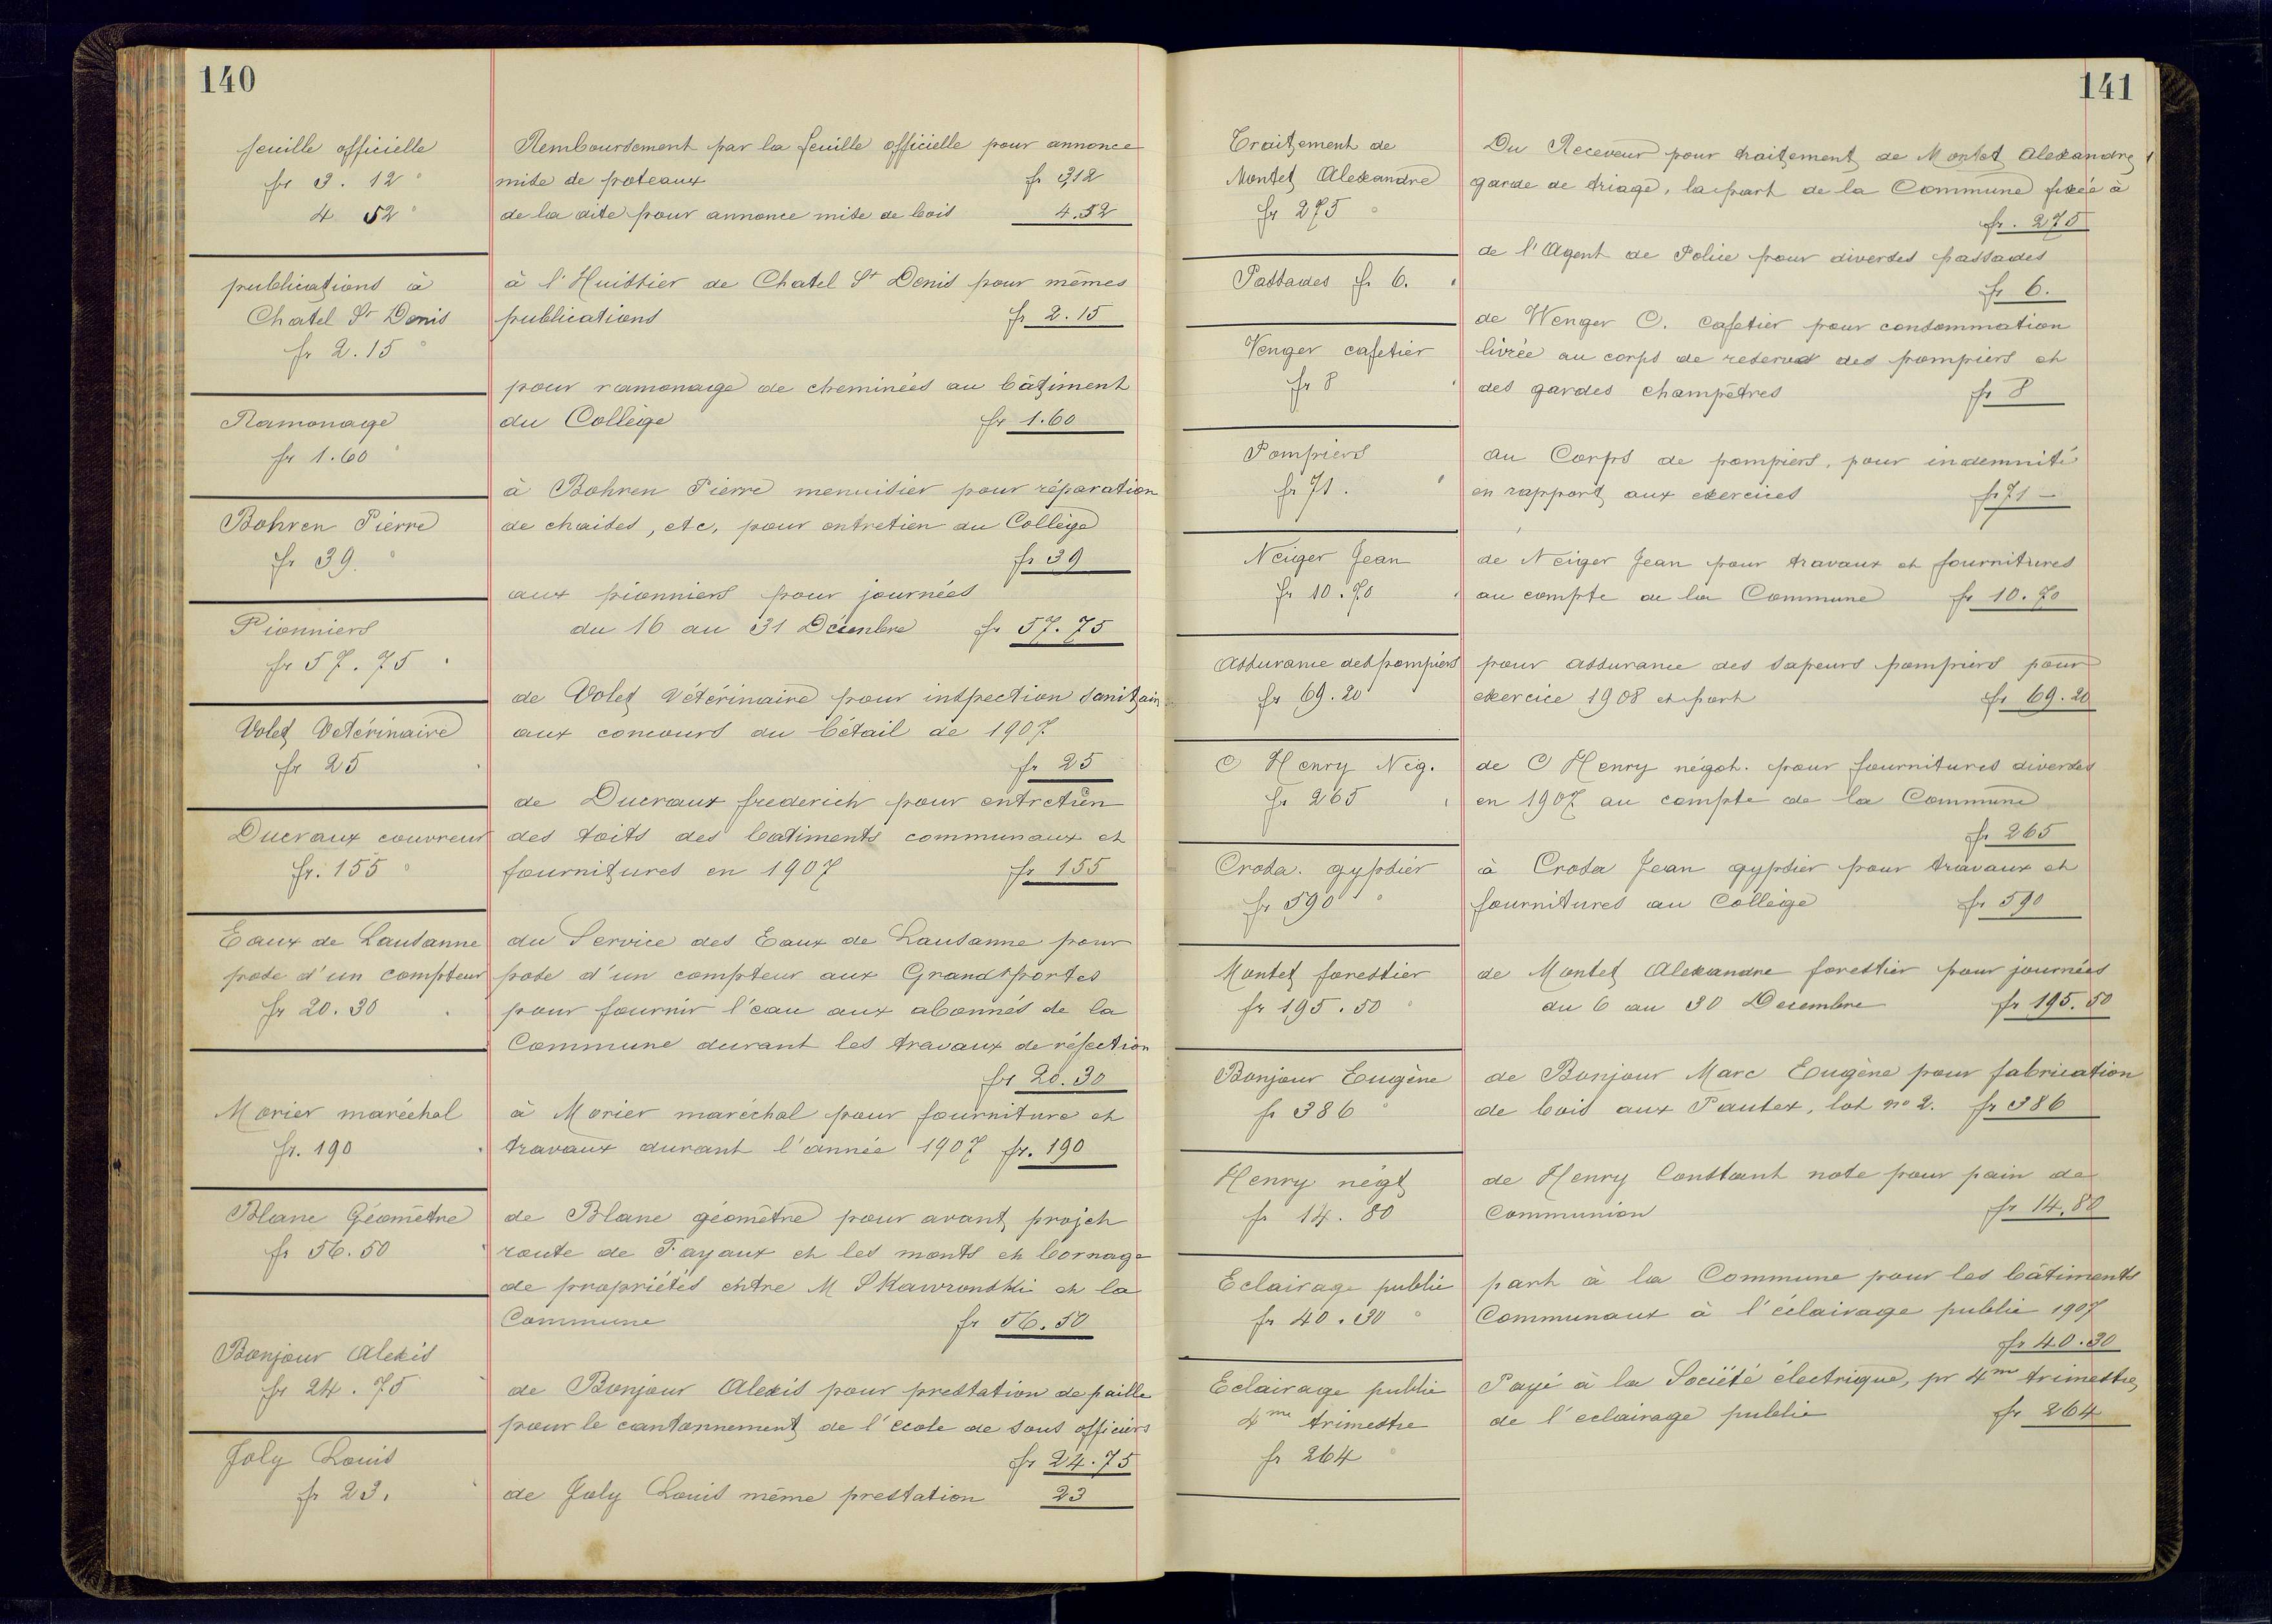 140
feuille officielle
fr 3. 12
4 52
Remboursement par la feuille officielle pour annonce
mise de poteaux fr 3,12
de la dite pour annonce mise de bois 4.52
publications à
Chatel St Denis
fr 2.15
à l'Huissier de Chatel St Denis pour mêmes
publications fr 2.15
Ramonage
fr 1.60
pour ramonage de cheminées au bâtiment
du Collège fr 1.60
Bohren Pierre
fr 39.
à Bohren Pierre menuisier pour réparation
de chaises, etc, pour entretien au Collège
fr 39
Pionniers
fr 57.75
aux pionniers pour journées
du 16 au 31 Décembre fr 57.75
Volet Vétérinaire
fr 25
de Volet Vétérinaire pour inspection sanitaire
aux concours du bétail de 1907
fr 25
Ducraux couvreur
fr. 155
de Ducraux frederich pour entretien
des toits des batiments communaux et
fournitures en 1907 fr 155
Eaux de Lausanne
pose d'un compteur
fr 20.30
du Service des Eaux de Lausanne pour
pose d'un compteur aux Grandsportes
pour fournir l'eau aux abonnés de la
Commune durant les travaux de réfection
fr 20.30
Morier maréchal
fr. 190
à Morier maréchal pour fourniture et
travaux durant l'année 1907 fr. 190
Blanc Géomètre
fr 56.50
de Blanc géomètre pour avant projet
route de Fayaux et les monts et bornage
de propriétés entre M Skawronski et la
Commune fr 56.50
Bonjour Alexis
fr 24.75
de Bonjour Alexis pour prestation de paille
pour le cantonnement de l'école de sous officiers
fr 24.75
Joly Louis
fr 23.
de Joly Louis même prestation 23
141
Traitement de
Montet Alexandre
fr 275
Du Receveur pour traitement de Montet Alexandre
garde de triage, la part de la Commune fixée à
fr. 275
Passades fr 6.
de l'Agent de Police pour diverses passades
fr 6.
Venger cafetier
fr 8
de Wenger C. Cafetier pour consommation
livrée au corps de reserve des pompiers et
des gardes champêtres fr 8
Pompiers
fr 71.
au Corps de pompiers, pour indemnité
en rapport aux exercices fr 71 -
Neiger Jean
fr 10.70
de Neiger Jean pour travaux et fournitures
au compte de la Commune fr 10.70
Assurance des pompiers
fr 69.20
pour assurance des sapeurs pompiers pour
exercice 1908 et port fr 69.20
C Henry Nég.
fr 265
de C Henry négot. pour fournitures diverses
en 1907 au compte de la Commune
fr 265
Crosa. gypsier
fr 590
à Crosa Jean gypsier pour travaux et
fournitures au Collège fr 590
Montet forestier
fr 195.50
de Montet Alexandre forestier pour journées
du 6 au 30 Decembre fr 195.50
Bonjour Eugène
fr 386
de Bonjour Marc Eugène pour fabrication
de bois aux Pautex, lot no 2. fr 386
Henry négt
fr 14.80
de Henry Constant note pour pain de
Communion fr 14.80
Eclairage public
fr 40.30
part à la Commune pour les bâtiments
Communaux à l'éclairage public 1907
fr 40.30
Eclairage public
4me trimestre
fr 264
Payé à la Société électrique, pr 4me trimestre
de l'eclairage public fr 264